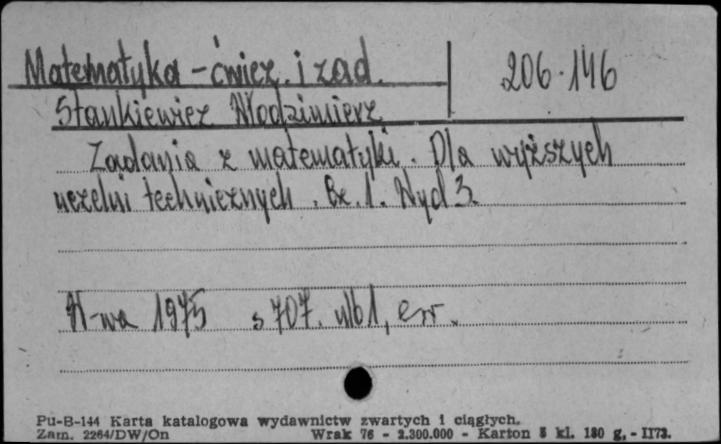 Matematyka - ćwicz. i zad.
206.146
Stankiewicz Włodzimierz
Zadania z matematyki. Dla wyższych
uczelni technicznych. Cz. 1. Wyd 3.
W-wa 1975 s 707. nlb 1, err.
Pu-B-144 Karta katalogowa wydawnictw zwartych i ciągłych.
Zam. 2264/DW/On Wrak 76 - 2.300.000 - Karton 5 kl. 180 g, - II73.